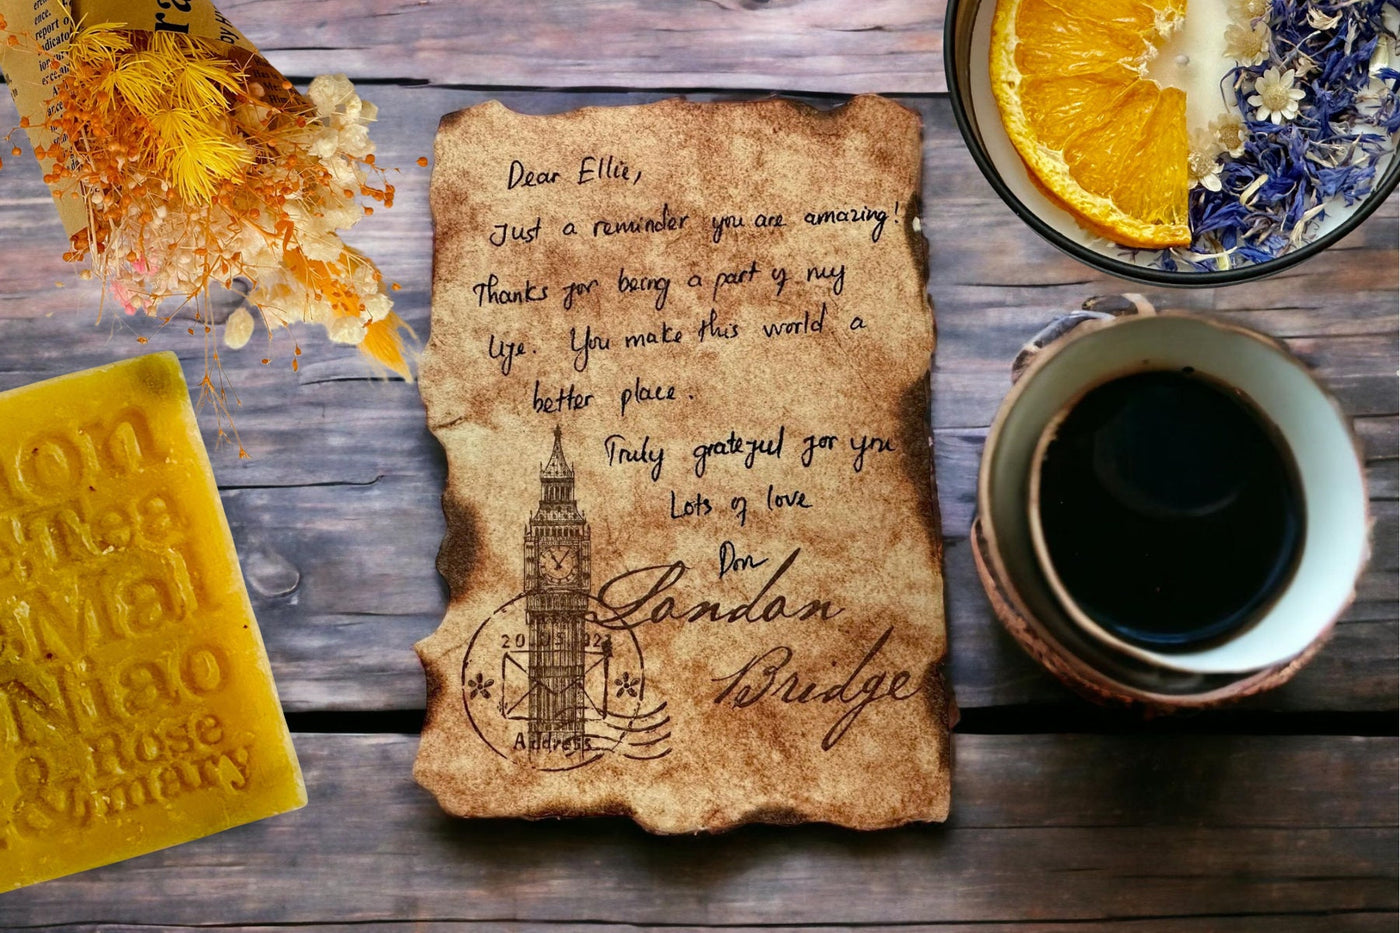 Dear Ellie,
Just a reminder you are amazing!
Thanks for being a part of my
life. You make this world a
better place.
Truly grateful for you
Lots of love
Don
London
Bridge
20
Address
Tea
Mal
Niao
& Rose
mary
report